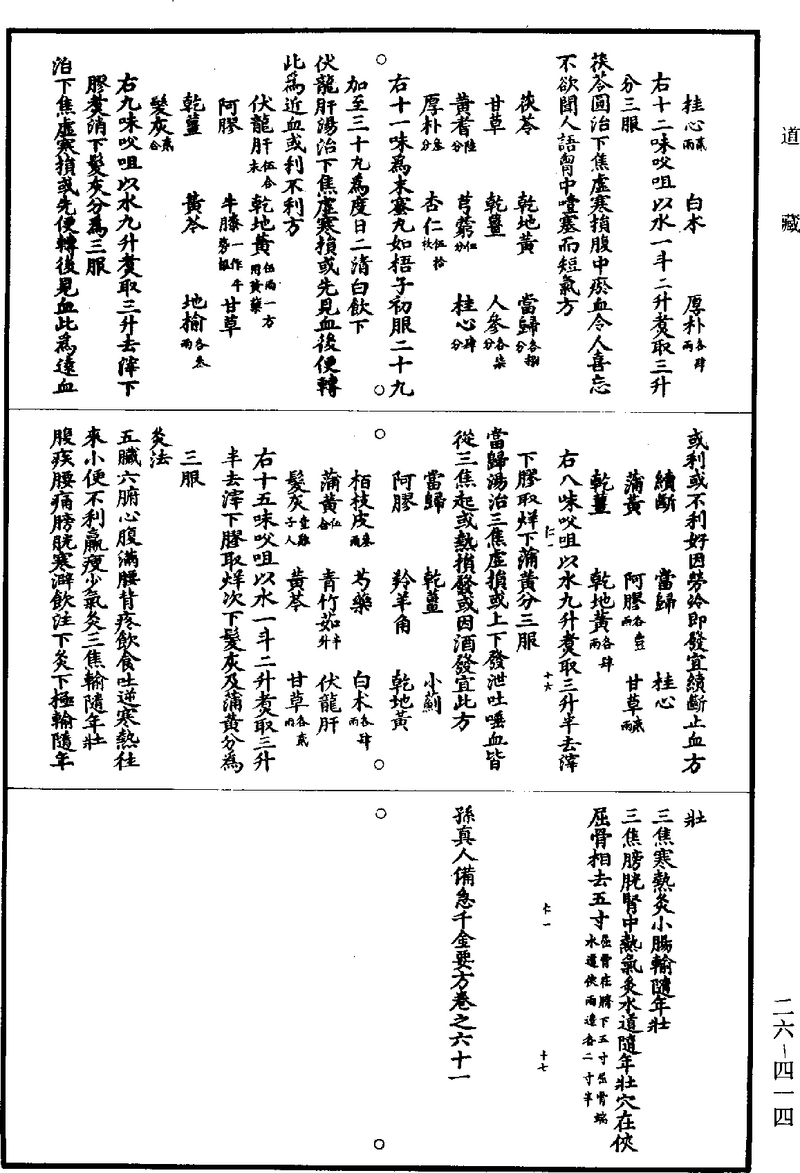 道藏
桂心貳兩　白朮　厚朴各肆兩
右十二味㕮咀以水一斗二升煑取三升
分三服
茯苓圓治下焦虛寒損腹中瘀血令人喜忘
不欲聞人語胷中噎塞而短氣方
茯苓　乾地黃　當歸各捌分
甘草　乾薑　人參各柒分
黃耆陸分　芎藭伍分　桂心肆分
厚朴叁分　杏仁伍拾枚
右十一味爲末蜜丸如梧子初服二十丸
加至三十丸爲度日二清白飲下
伏龍肝湯治下焦虛寒損或先見血後便轉
此爲近血或利不利方
伏龍肝伍合末　乾地黃伍兩一方用黃蘗
阿膠　牛膝一作牛肪　甘草
乾薑　黃芩　地榆各叁兩
髮灰貳合
右九味㕮咀以水九升煑取三升去滓下
膠煑消下髮灰分爲三服
治下焦虛寒損或先便轉後見血此爲遠血
或利或不利好因勞冷即發宜續斷止血方
續斷　當歸　桂心
蒲黃　阿膠各壹兩　甘草貳兩
乾薑　乾地黃各肆兩
右八味㕮咀以水九升煑取三升半去滓
下膠取烊下蒲黃分三服
仁一　十六
當歸湯治三焦虛損或上下發泄吐唾血皆
從三焦起或熱損發或因酒發宜此方
當歸　乾薑　小薊
阿膠　羚羊角　乾地黃
栢枝皮叁兩　芍藥　白朮各肆兩
蒲黃伍合　青竹茹半升　伏龍肝
髮灰壹雞子　黃芩　甘草各貳兩
右十五味㕮咀以水一斗二升煑取三升
半去滓下膠取烊次下髮灰及蒲黃分爲
三服
灸法
五臟六腑心腹滿腰背疼飲食吐逆寒熱往
來小便不利羸瘦少氣灸三焦輸隨年壯
腹疾腰痛膀胱寒澼飲注下灸下極輸隨年
壯
三焦寒熱灸小腸輸隨年壯
三焦膀胱腎中熱氣灸水道隨年壯穴在俠
屈骨相去五寸屈骨在臍下五寸屈骨端水道俠兩邊各二寸半
仁一　十七
孫真人備急千金要方卷之六十一
二六—四一四